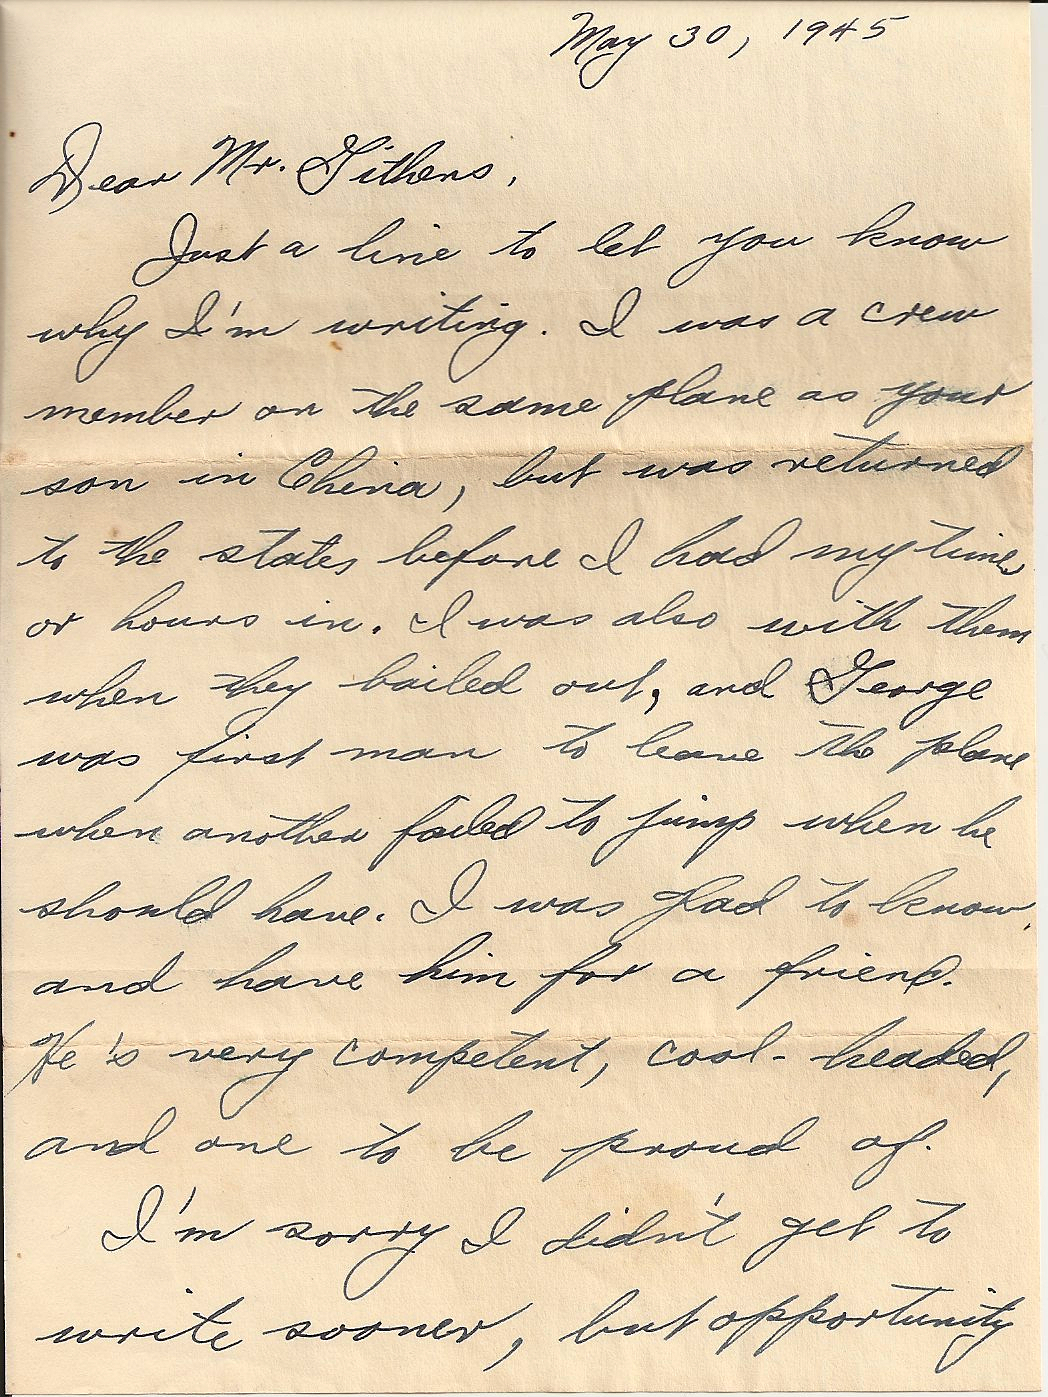 May 30, 1945
Dear Mr. Githens,
Just a line to let you know
why I'm writing. I was a crew
member on the same plane as your
son in China, but was returned
to the states before I had my time
or hours in. I was also with them
when they bailed out, and George
was first man to leave the plane
when another failed to jump when he
should have. I was glad to know,
and have him for a friend.
He's very competent, cool-headed,
and one to be proud of.
I'm sorry I didn't get to
write sooner, but opportunity